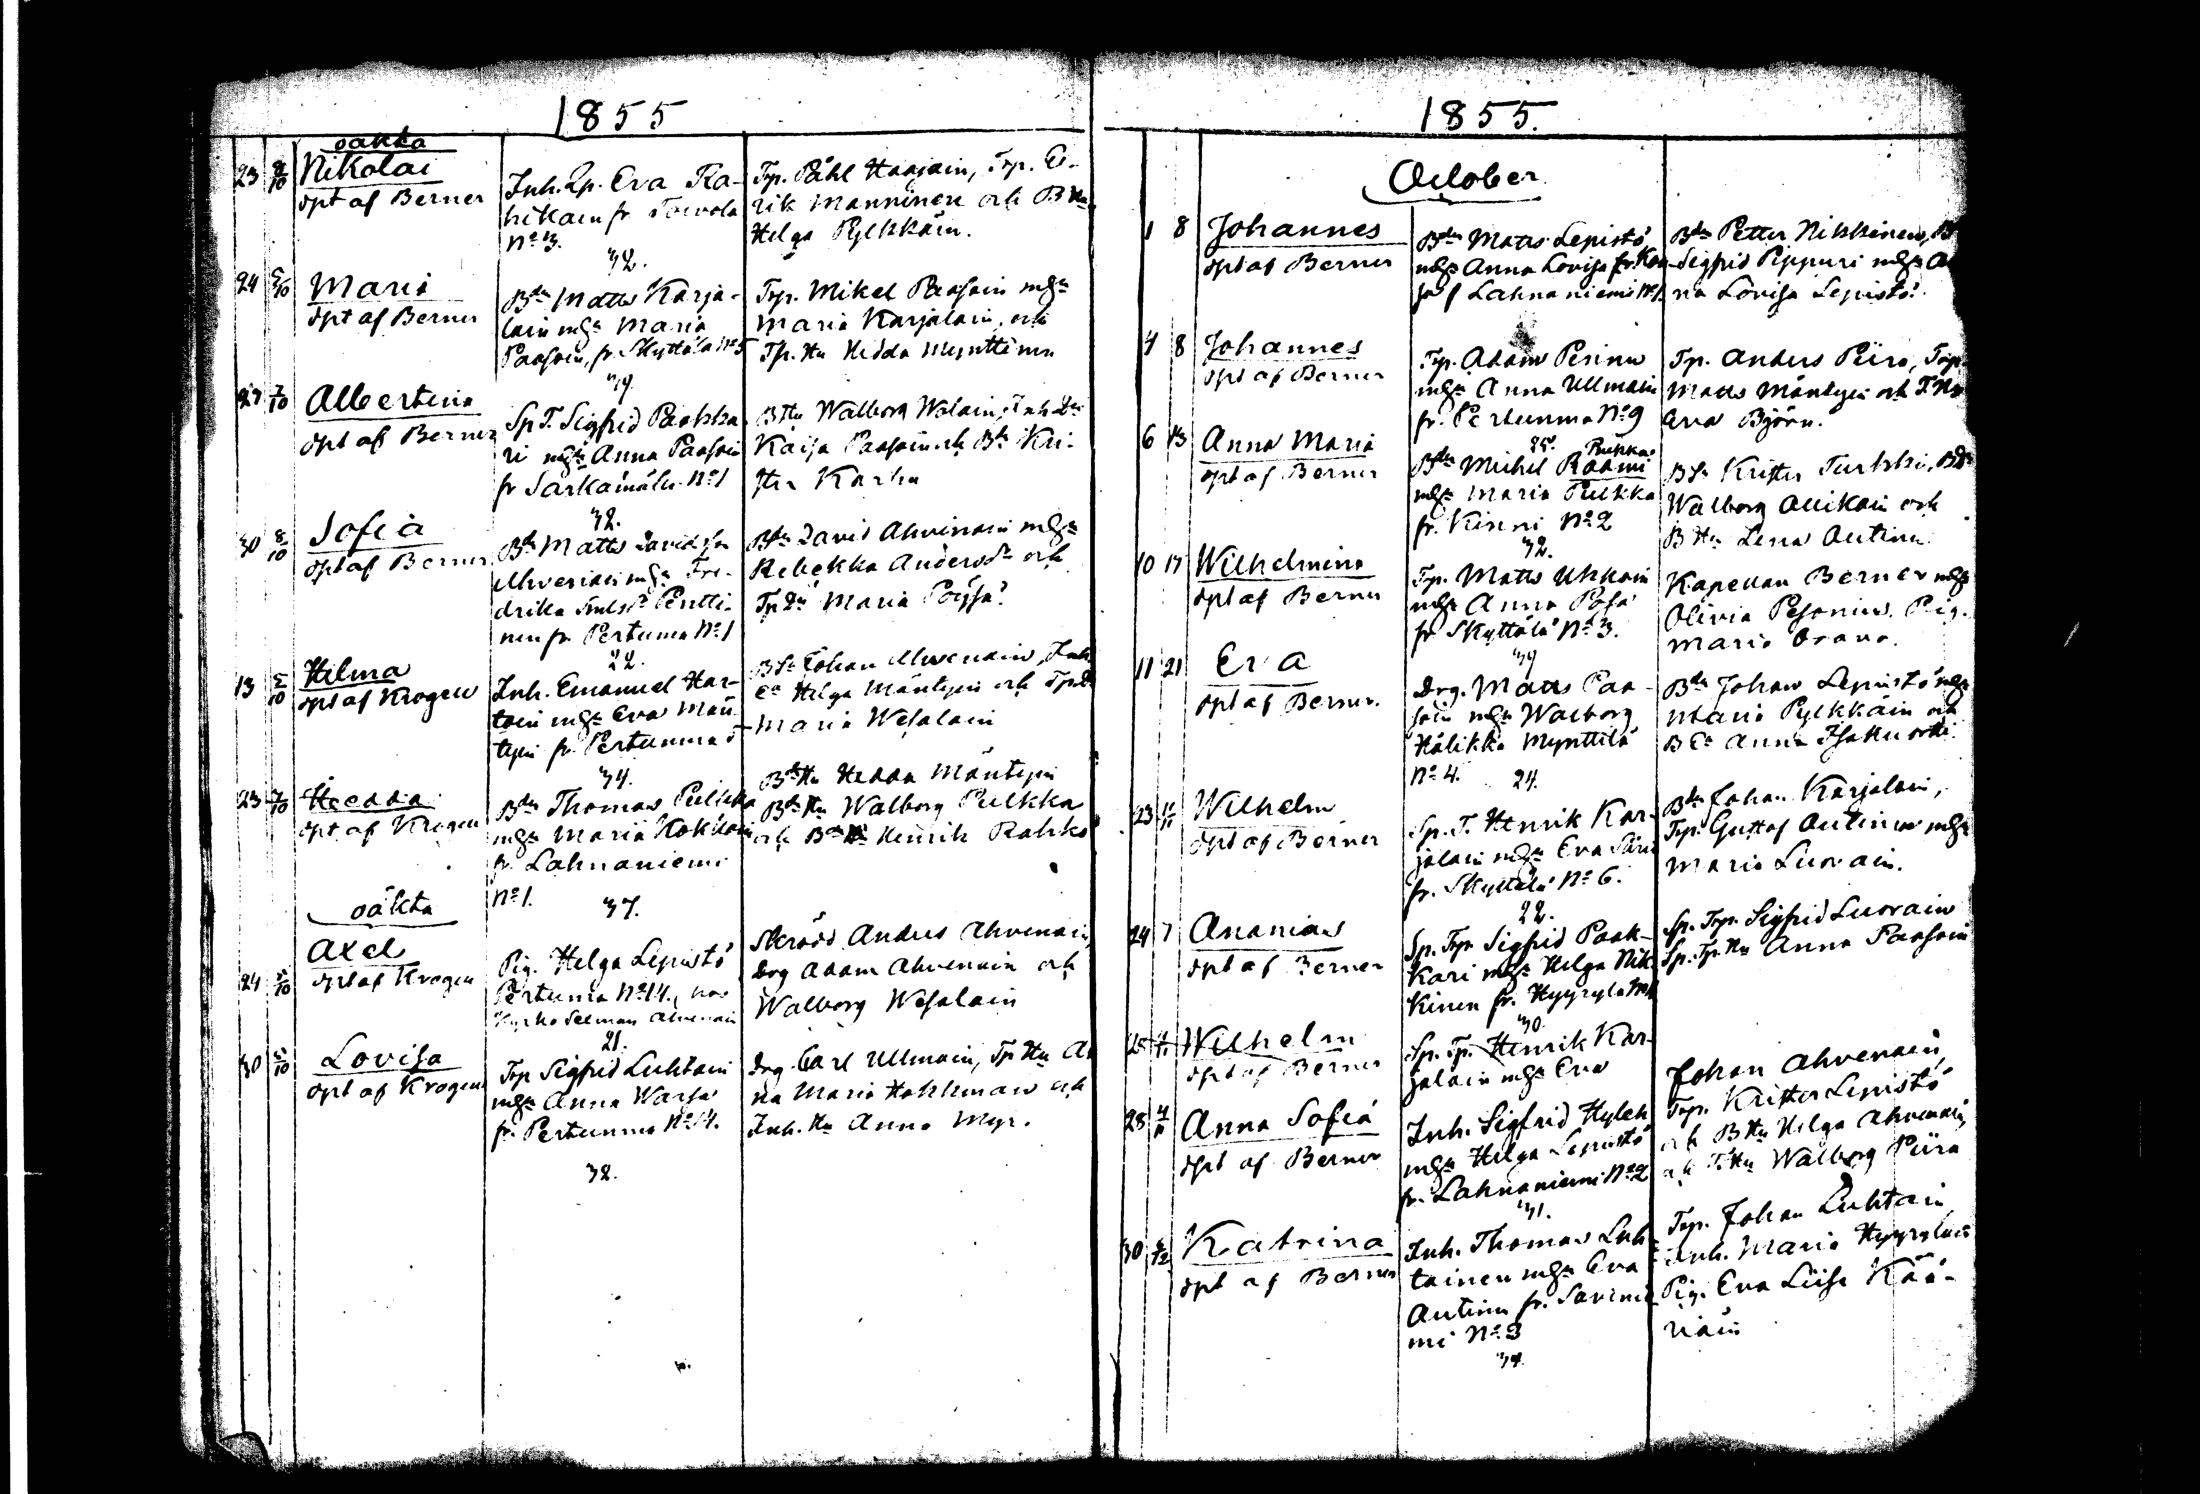 1855
oäkta
23 8/10 Nikolai
dpt af Berner
Inh. Qp. Eva Ka-
hikain fr Toivola
No 3.
Tp. Påhl Haajain, Tp. Ee-
rik Manninen och B Hu
Helga Pylkkäin.
32.
24 5/10 Maria
dpt af Berner
Bdn Matts Karja-
lain mhu Maria
Paasoin, fr Skyttälä No 5
Tp. Mikel Paasoin mhu
Maria Karjalain, och
Tp. Hu Hedda Mynttinen
39.
27 7/10 Albertina
dpt af Berner
Sp T. Sigfrid Paakka
ri mhu Anna Paasoin
fr Särkämäki No 1
B Hu Walborg
Kaisa Paasoin och Bdr Kri-
ster Karhu
32.
30 8/10 Sofia
dpt af Berner
Bdn Matts Davidsson
Ahvenain mhu Fre-
drika Pentti-
nen fr Pertuma No 1
Bdn David Ahvenain mhu
Rebekka Andersdr och
Tp Dr Maria Pöysä
22.
13 5/10 Hilma
dpt af Krogen
Inh. Emanuel Har-
tain mhu Eva Män-
tyin fr. Pertunma 5
BSn Johan Ahvenain, Inh
Ea Helga Mäntyin och Tp D
Maria Wesalain
34.
23 7/10 Hedda
dpt af Krogen
Bdn Thomas Pulkka
mhu Maria Kokkoin
fr. Lahnaniemi
No 1.
Bdn Hu Hedda Mäntyin
Bdn Hu Walborg Pulkka
och Bdn Henrik Rahko
37.
oäkta
24 5/10 Axel
dpt af Krogen
Pig. Helga Lepistö
Pertuma No 14., hos
Kyrko Ahvenain
Skrädd. Anders Ahvenain,
Drg Adam Ahvenain och
Walborg Wesalain
21.
30 5/10 Lovisa
dpt af Krogen
Tp Sigfrid Luhtain
mhu Anna Warsa
fr. Pertunma No 14.
Drg. Carl Ullmain, Tp Hu An
na Maria Hokkman och
Inh. Hu Anna Myr.
32.
1855.
October
1 8 Johannes
dpt af Berner
Bdn Matts Lepistö,
mhu Anna Lovisa fr
Lahnaniemi No 1.
Bdn Petter Nikkinen, B
Sigfrid Pippuri mhu An
na Lovisa Lepistö.
4 8 Johannes
dpt af Berner
Tp. Adam Perinen
mhu Anna Ullmain
fr. Pertunma No 9
Tp. Anders Piira, Tp
Matts Mäntyin och T. Hu
Eva Björn.
25.
6 13 Anna Maria
dpt af Berner
Pukka
Bdn Mickel Raami
mhu Maria Pulkka
fr. Kinni No 2
BSn Krister Turkki, BDr
Walborg Ollikain och
B Hu Lena Autinen
32.
10 17 Wilhelmina
dpt af Berner
Tp. Matts Ukkoin
mhu Anna Posa
fr Skyttälä No 3.
Kapellan Berner mhu
Olivia Pesonius. Pig.
Maria Orava.
39
11 21 Eva
dpt af Berner
Drg. Matts Paa-
soin mhu Walborg
Hälikkä Mynttilä
No 4.
Bdn Johan Lepistö mhu
Maria Pylkkäin och
B Ea Anna
24.
23 Wilhelm
dpt af Berner
Sp. T. Henrik Kar-
jalain mhu Eva
fr. Skyttälä No 6.
Bdn Johan Karjalain,
Tp. Gustaf Autinen mhu
Maria Luovain.
22.
24 7 Ananias
dpt af Berner
Sp. Tp Sigfrid Paak-
kari mhu Helga Nik
kinen fr. Hyyrylä No 1
Sp. Tp. Sigfrid Luovain
Sp. Tp. Hu Anna Paasoin
30.
25 Wilhelm
dpt af Berner
Sp. Tp. Henrik Kar-
jalain mhu Eva
28 4/11 Anna Sofia
dpt af Berner
Inh. Sigfrid
mhu Helga Lepistö
fr. Lahnaniemi No 2
Johan Ahvenain,
Tp. Krister Lepistö
och B Hu Helga Ahvenain,
och T. Hu Walborg Piira
31.
30 2/12 Katrina
dpt af Berner
Inh. Thomas Luh-
tainen mhu Eva
Autinen fr. Savinie
mi No 3
Tp. Johan Luhtain
Inh. Maria Hyyryläin
Pig. Eva Liisa Kää-
riäin
34.